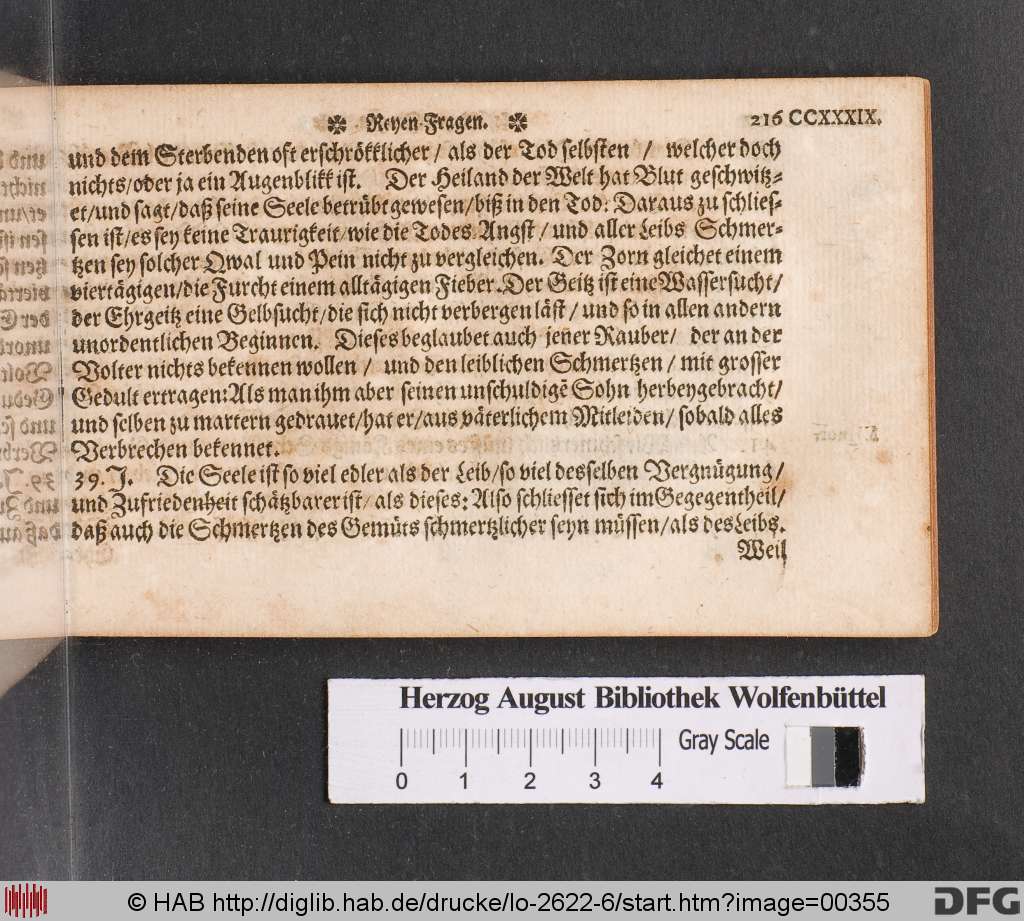 ✼ Reyen-Fragen. ✼ 216 CCXXXIX.
und dem Sterbenden oft erschrökklicher / als der Tod selbsten / welcher doch
nichts/oder ja ein Augenblikk ist. Der Heiland der Welt hat Blut geschwitz-
et/und sagt/daß seine Seele betrübt gewesen/biß in den Tod: Daraus zu schlies-
sen ist/es sey keine Traurigkeit/wie die Todes Angst / und aller Leibs Schmer-
tzen sey solcher Qwal und Pein nicht zu vergleichen. Der Zorn gleichet einem
viertägigen/die Furcht einem alltägigen Fieber. Der Geitz ist eine Wassersucht/
der Ehrgeitz eine Gelbsucht/die sich nicht verbergen läst / und so in allen andern
unordentlichen Beginnen. Dieses beglaubet auch jener Rauber/ der an der
Volter nichts bekennen wollen / und den leiblichen Schmertzen / mit grosser
Gedult ertragen: Als man ihm aber seinen unschuldigē Sohn herbeygebracht/
und selben zu martern gedrauet/hat er/aus väterlichem Mitleiden/ sobald alles
Verbrechen bekennet.
39. J. Die Seele ist so viel edler als der Leib/so viel desselben Vergnügung/
und Zufriedenheit schätzbarer ist/ als dieses: Also schliesset sich im Gegegentheil/
daß auch die Schmertzen des Gemüts schmertzlicher seyn müssen/als des Leibs.
Weil
Herzog August Bibliothek Wolfenbüttel
0 1 2 3 4 Gray Scale
© HAB http://diglib.hab.de/drucke/lo-2622-6/start.htm?image=00355
DFG